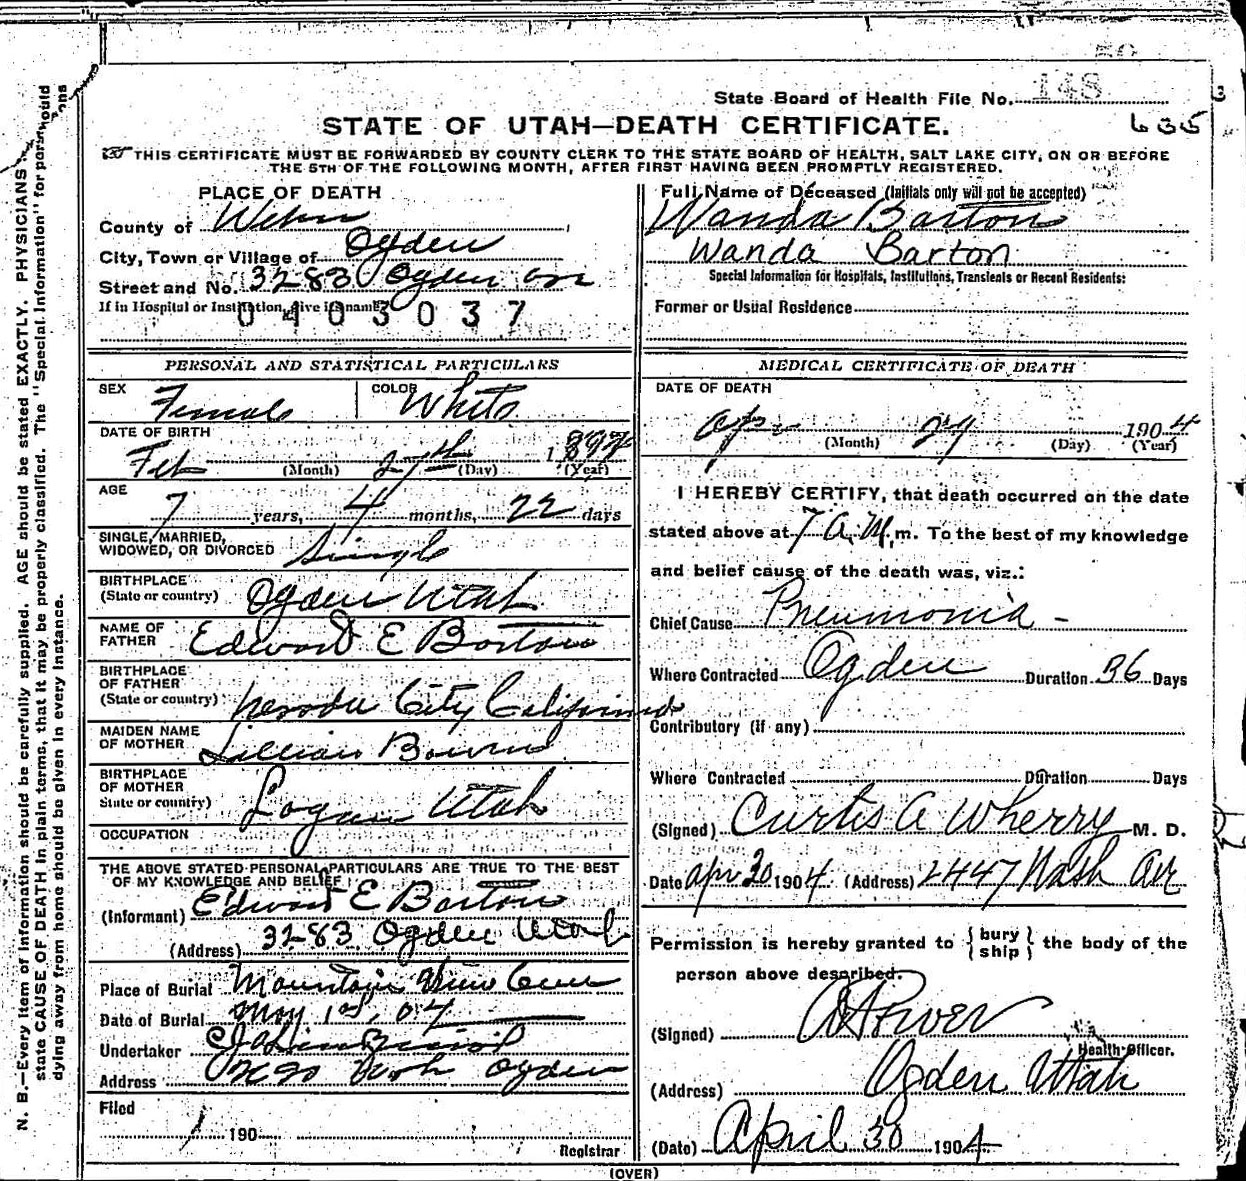 State Board of Health File No. 148
635
STATE OF UTAH—DEATH CERTIFICATE.
THIS CERTIFICATE MUST BE FORWARDED BY COUNTY CLERK TO THE STATE BOARD OF HEALTH, SALT LAKE CITY, ON OR BEFORE
THE 5TH OF THE FOLLOWING MONTH, AFTER FIRST HAVING BEEN PROMPTLY REGISTERED.
PLACE OF DEATH
County of Weber
City, Town or Village of Ogden
Street and No. 3283 Ogden ave
If in Hospital or Institution, give its name
0403037
Full Name of Deceased (Initials only will not be accepted)
Wanda Barton
Wanda Barton
Special Information for Hospitals, Institutions, Transients or Recent Residents:
Former or Usual Residence
PERSONAL AND STATISTICAL PARTICULARS
SEX Female COLOR White
DATE OF BIRTH
Feb (Month) 27th (Day) 1897 (Year)
AGE
7 years, 4 months, 22 days
SINGLE, MARRIED,
WIDOWED, OR DIVORCED Single
BIRTHPLACE
(State or country) Ogden Utah
NAME OF
FATHER Edward E Barton
BIRTHPLACE
OF FATHER
(State or country) Nevada City California
MAIDEN NAME
OF MOTHER Lillian Bowen
BIRTHPLACE
OF MOTHER
State or country) Logan Utah
OCCUPATION
THE ABOVE STATED PERSONAL PARTICULARS ARE TRUE TO THE BEST
OF MY KNOWLEDGE AND BELIEF
(Informant) Edward E Barton
(Address) 3283 Ogden Utah
Place of Burial Mountain View Cem
Date of Burial May 1st, 04
Undertaker
Address Ogden
Filed
190
Registrar
MEDICAL CERTIFICATE OF DEATH
DATE OF DEATH
Apr (Month) 29 (Day) 1904 (Year)
I HEREBY CERTIFY, that death occurred on the date
stated above at 7 A.M. m. To the best of my knowledge
and belief cause of the death was, viz.:
Chief Cause Pneumonia -
Where Contracted Ogden Duration 36 Days
Contributory (if any)
Where Contracted Duration Days
(Signed) Curtis A Wherry M. D.
Date Apr 30 1904 (Address) 2447 Wash Ave
Permission is hereby granted to {bury
ship} the body of the
person above described.
(Signed)
Health Officer.
(Address) Ogden Utah
(Date) April 30 1904
(OVER)
N. B.—Every item of information should be carefully supplied. AGE should be stated EXACTLY. PHYSICIANS
state CAUSE OF DEATH in plain terms, that it may be properly classified. The "Special Information" for
dying away from home should be given in every instance.